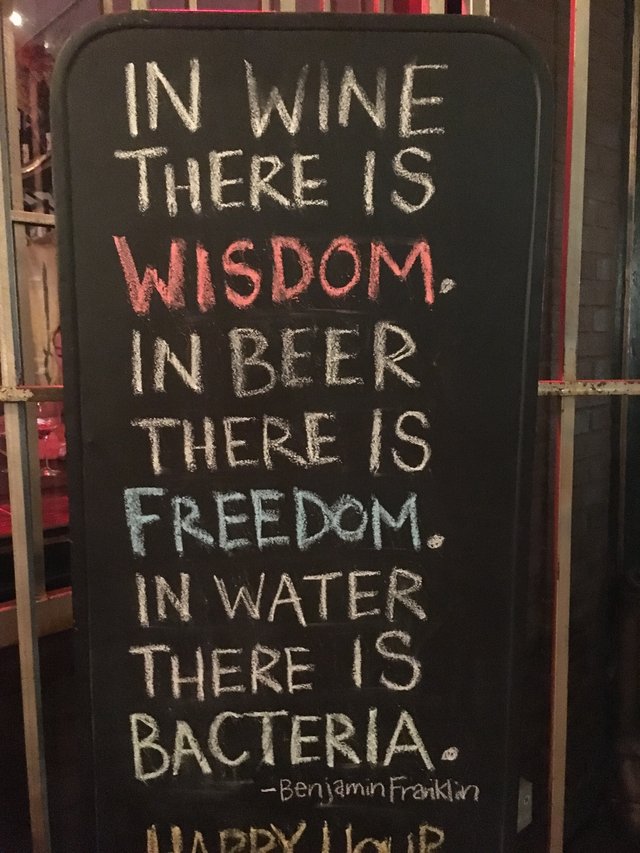 IN WINE
THERE IS
WISDOM.
IN BEER
THERE IS
FREEDOM.
IN WATER
THERE IS
BACTERIA.
-Benjamin Franklin
HAPPY HOUR